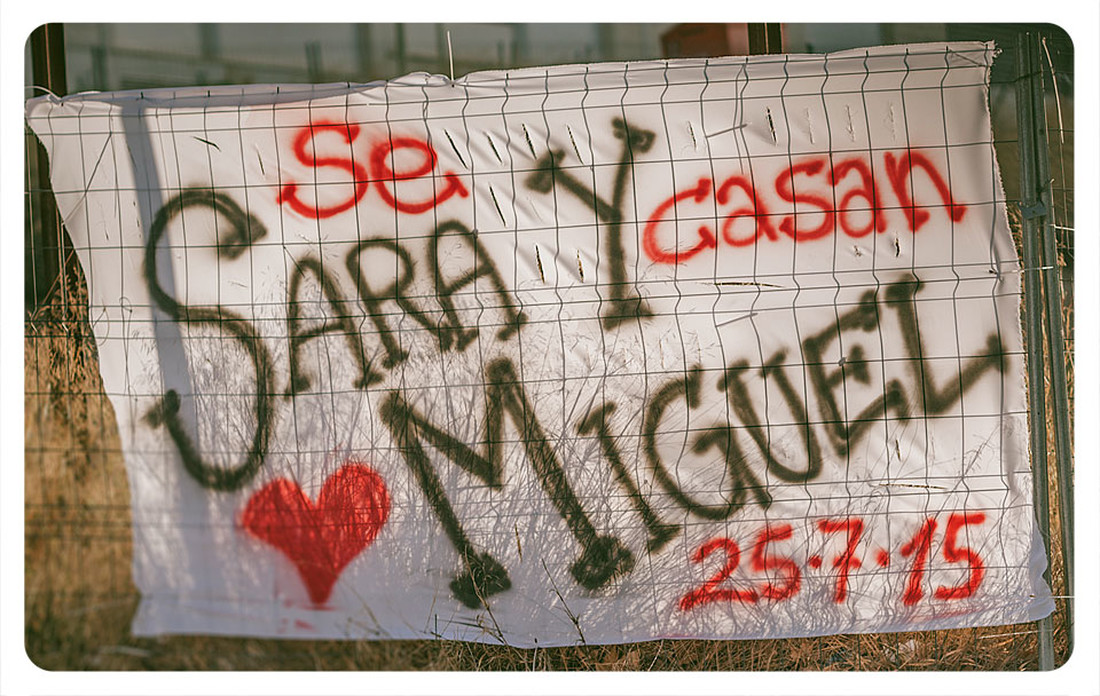 Se casan
SARA Y
MIGUEL
25·7·15